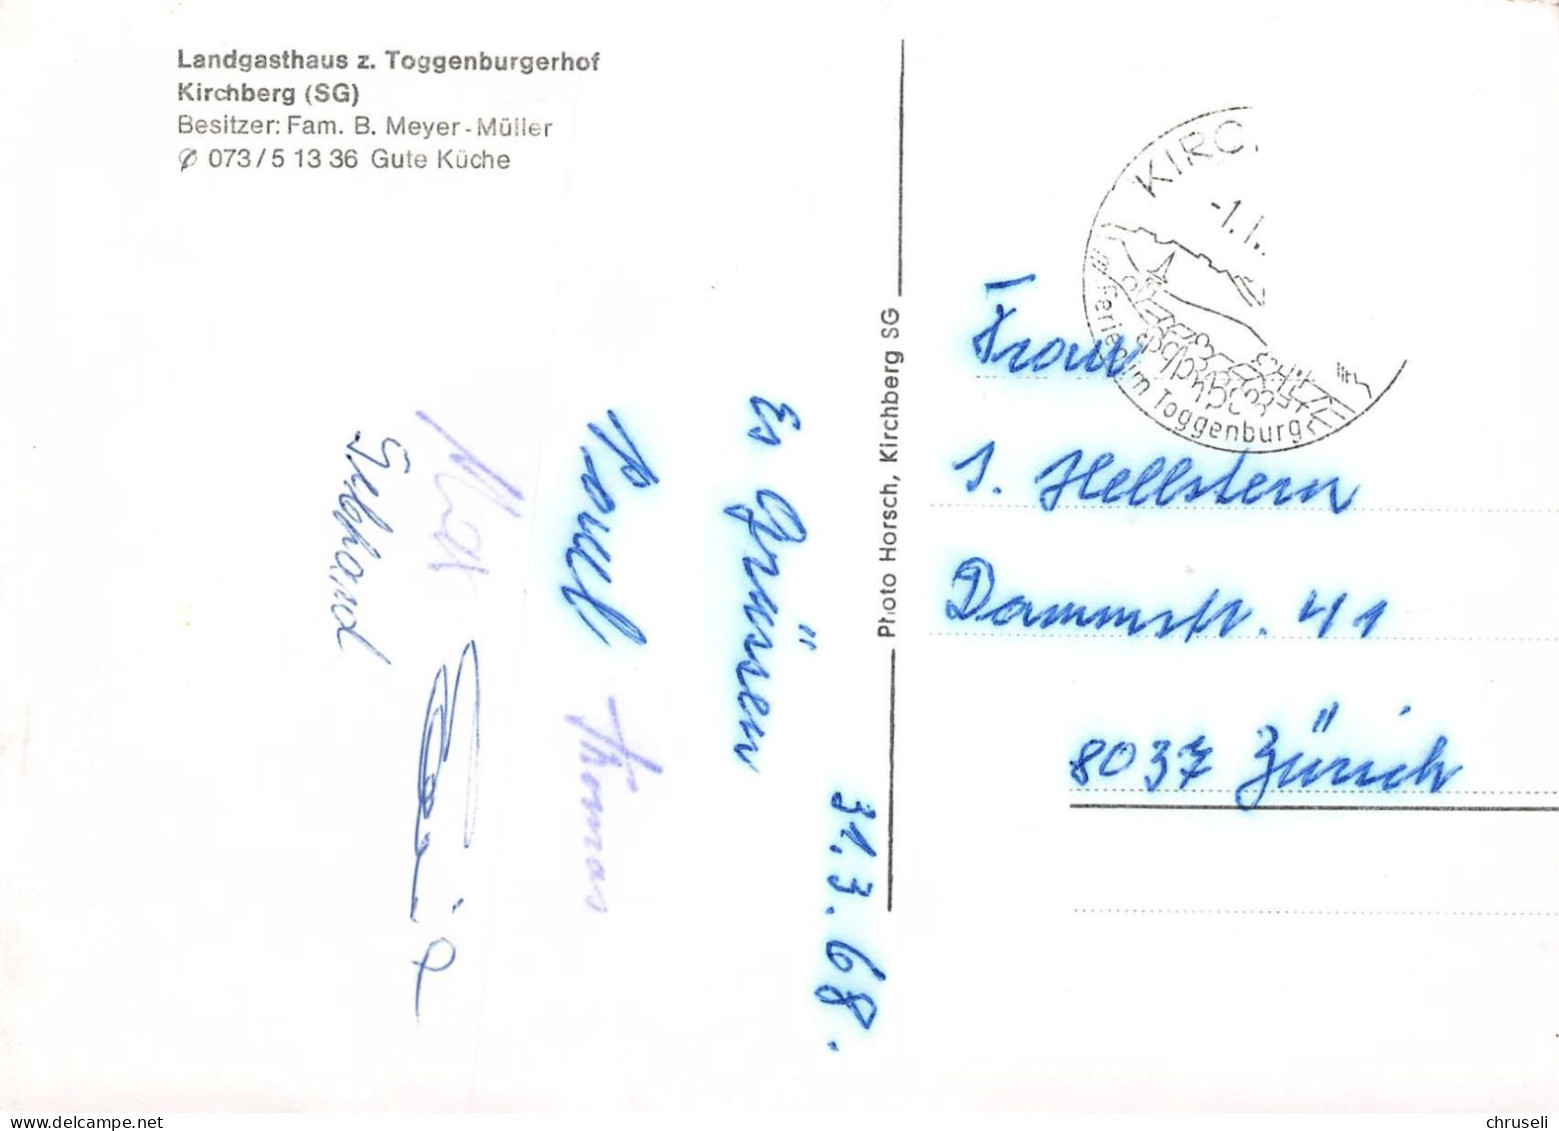 Landgasthaus z. Toggenburgerhof
Kirchberg (SG)
Besitzer: Fam. B. Meyer-Müller
✆ 073/5 13 36 Gute Küche
31.3.68.
Es Grüssen
Thomas
Gebhard
Photo Horsch, Kirchberg SG
KIRC
-1.
Ferien im Toggenburg
Frau
J. Hellstern
Dammstr. 41
8037 Zürich
chruseli